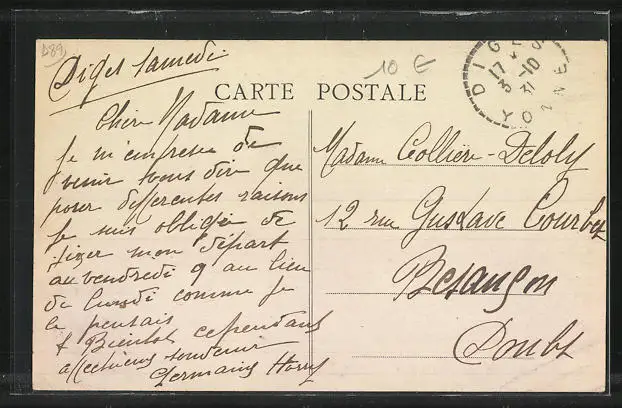 D89
10 €
DIGES
17 *
3-10
31
YONNE
CARTE POSTALE
Diges Samedi
Chère Madame
Je m'empresse de
venir vous dire que
pour différentes raisons
Je suis obligée de
fixer mon départ
au vendredi 9 au lieu
de lundi comme je
le pensais
A Bientôt cependant
affectueux souvenir
Germaine
Madame Collière-Deloly
12 rue Gustave Courbet
Besançon
Doubs